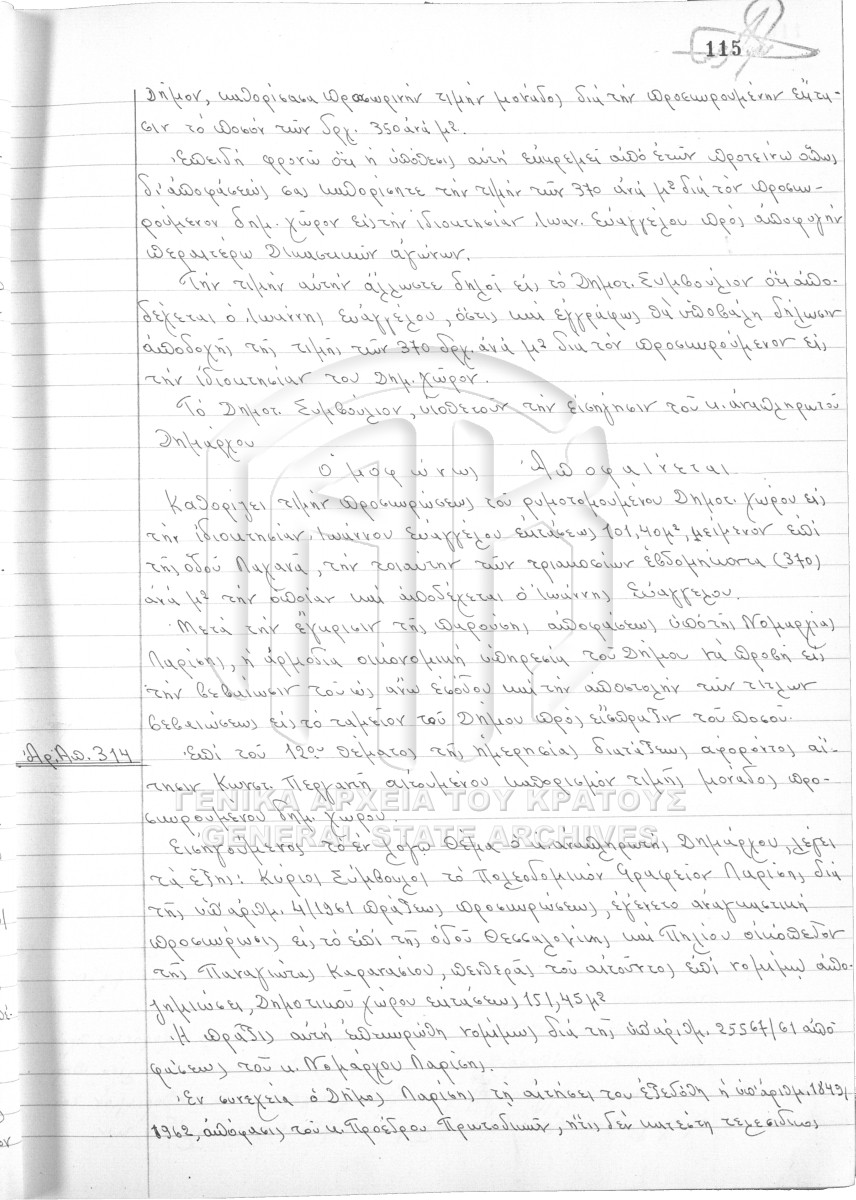 115
Δῆμον, καθορίσασα προσωρινήν τιμήν μονάδος διά τήν προσκυρουμένην ἔκτα-
σιν τό ποσόν τῶν δρχ. 350 ἀνά μ².
Ἐπειδή φρονῶ ὅτι ἡ ὑπόθεσις αὐτή ἐκκρεμεῖ ἀπό ἐτῶν προτείνω ὅπως
δι' ἀποφάσεώς σας καθορίσητε τήν τιμήν τῶν 370 ἀνά μ² διά τόν προσκυ-
ρούμενον δημ. χῶρον εἰς τήν ἰδιοκτησίαν Ἰωαν. Εὐαγγέλου πρός ἀποφυγήν
περαιτέρω Δικαστικῶν ἀγώνων.
Τήν τιμήν αὐτήν ἄλλωστε δηλοῖ εἰς τό Δημοτ. Συμβούλιον ὅτι ἀπο-
δέχεται ὁ Ἰωάννης Εὐαγγέλου, ὅστις καί ἐγγράφως θά ὑποβάλῃ δήλωσιν
ἀποδοχῆς τῆς τιμῆς τῶν 370 δρχ. ἀνά μ² διά τόν προσκυρούμενον εἰς
τήν ἰδιοκτησίαν του Δημ. χῶρον.
Τό Δημοτ. Συμβούλιον, υἱοθετοῦν τήν εἰσήγησιν τοῦ κ. ἀναπληρωτοῦ
Δημάρχου
Ὁμοφώνως Ἀποφαίνεται
Καθορίζει τιμήν προσκυρώσεως τοῦ ρυμοτομουμένου Δημοτ. χώρου εἰς
τήν ἰδιοκτησίαν Ἰωάννου Εὐαγγέλου ἐκτάσεως 101,40 μ², κείμενον ἐπί
τῆς ὁδοῦ Λαχανᾶ, τήν τοιαύτην τῶν τριακοσίων ἑβδομήκοντα (370)
ἀνά μ² τήν ὁποίαν καί ἀποδέχεται ὁ Ἰωάννης Εὐαγγέλου.
Μετά τήν ἔγκρισιν τῆς παρούσης ἀποφάσεως ὑπό τῆς Νομαρχίας
Λαρίσης, ἡ ἁρμοδία οἰκονομική ὑπηρεσία τοῦ Δήμου νά προβῇ εἰς
τήν βεβαίωσιν τοῦ ὡς ἄνω ἐσόδου καί τήν ἀποστολήν τῶν τίτλων
βεβαιώσεως εἰς τό ταμεῖον τοῦ Δήμου πρός εἴσπραξιν τοῦ ποσοῦ.
Ἀρ. Ἀπ. 314
Ἐπί τοῦ 12ου θέματος τῆς ἡμερησίας διατάξεως ἀφορόντος αἴ-
τησιν Κωνστ. Περγαντῆ αἰτουμένου καθορισμόν τιμῆς μονάδος προ-
σκυρουμένου δημ. χώρου.
Εἰσηγούμενος τό ἐν λόγῳ θέμα ὁ κ. ἀναπληρωτής Δημάρχου, λέγει
τά ἑξῆς: Κύριοι Σύμβουλοι τό Πολεοδομικόν Γραφεῖον Λαρίσης διά
τῆς ὑπ' ἀριθμ. 4/1961 πράξεως προσκυρώσεως, ἐγένετο ἀναγκαστική
προσκύρωσις εἰς τό ἐπί τῆς ὁδοῦ Θεσσαλονίκης καί Πηλίου οἰκόπεδον
τῆς Παναγιώτας Καρανασίου, πεθερᾶς τοῦ αἰτοῦντος ἐπί νομίμῳ ἀπο-
ζημιώσει, Δημοτικοῦ χώρου ἐκτάσεως 151,45 μ²
Ἡ πρᾶξις αὐτή ἐπεκυρώθη νομίμως διά τῆς ὑπ' ἀριθμ. 25567/61 ἀπο-
φάσεως τοῦ κ. Νομάρχου Λαρίσης.
Ἐν συνεχείᾳ ὁ Δῆμος Λαρίσης τῇ αἰτήσει του ἐξεδόθη ἡ ὑπ' ἀριθμ. 1849/
1962, ἀπόφασις τοῦ κ. Προέδρου Πρωτοδικῶν, ἥτις δέν κατέστη τελεσίδικος
ΓΕΝΙΚΑ ΑΡΧΕΙΑ ΤΟΥ ΚΡΑΤΟΥΣ
GENERAL STATE ARCHIVES